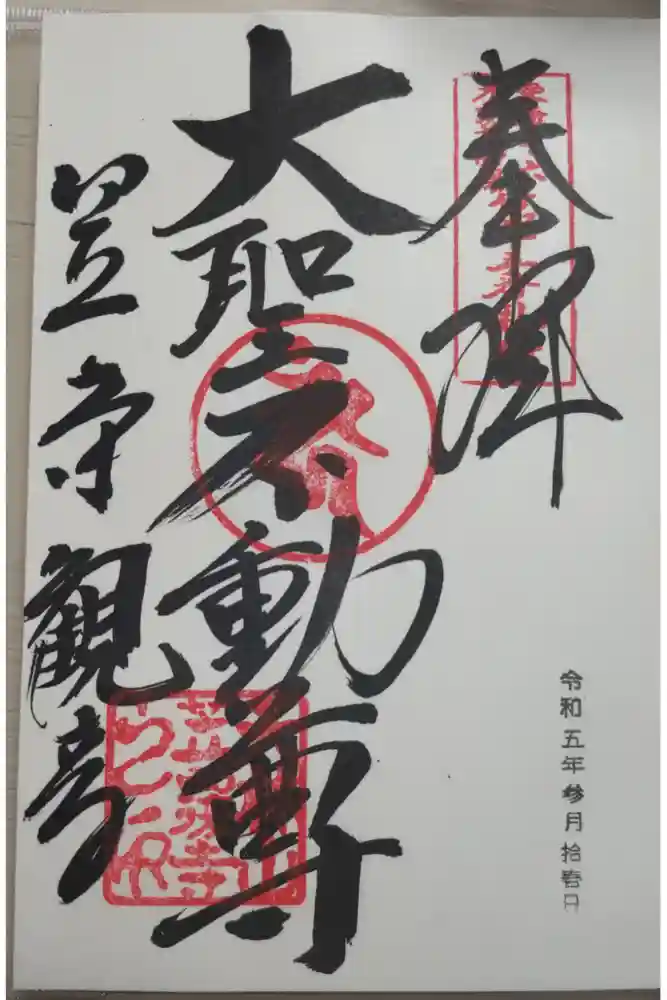 奉拝
令和五年参月拾壱日
大聖不動尊
笠寺観音